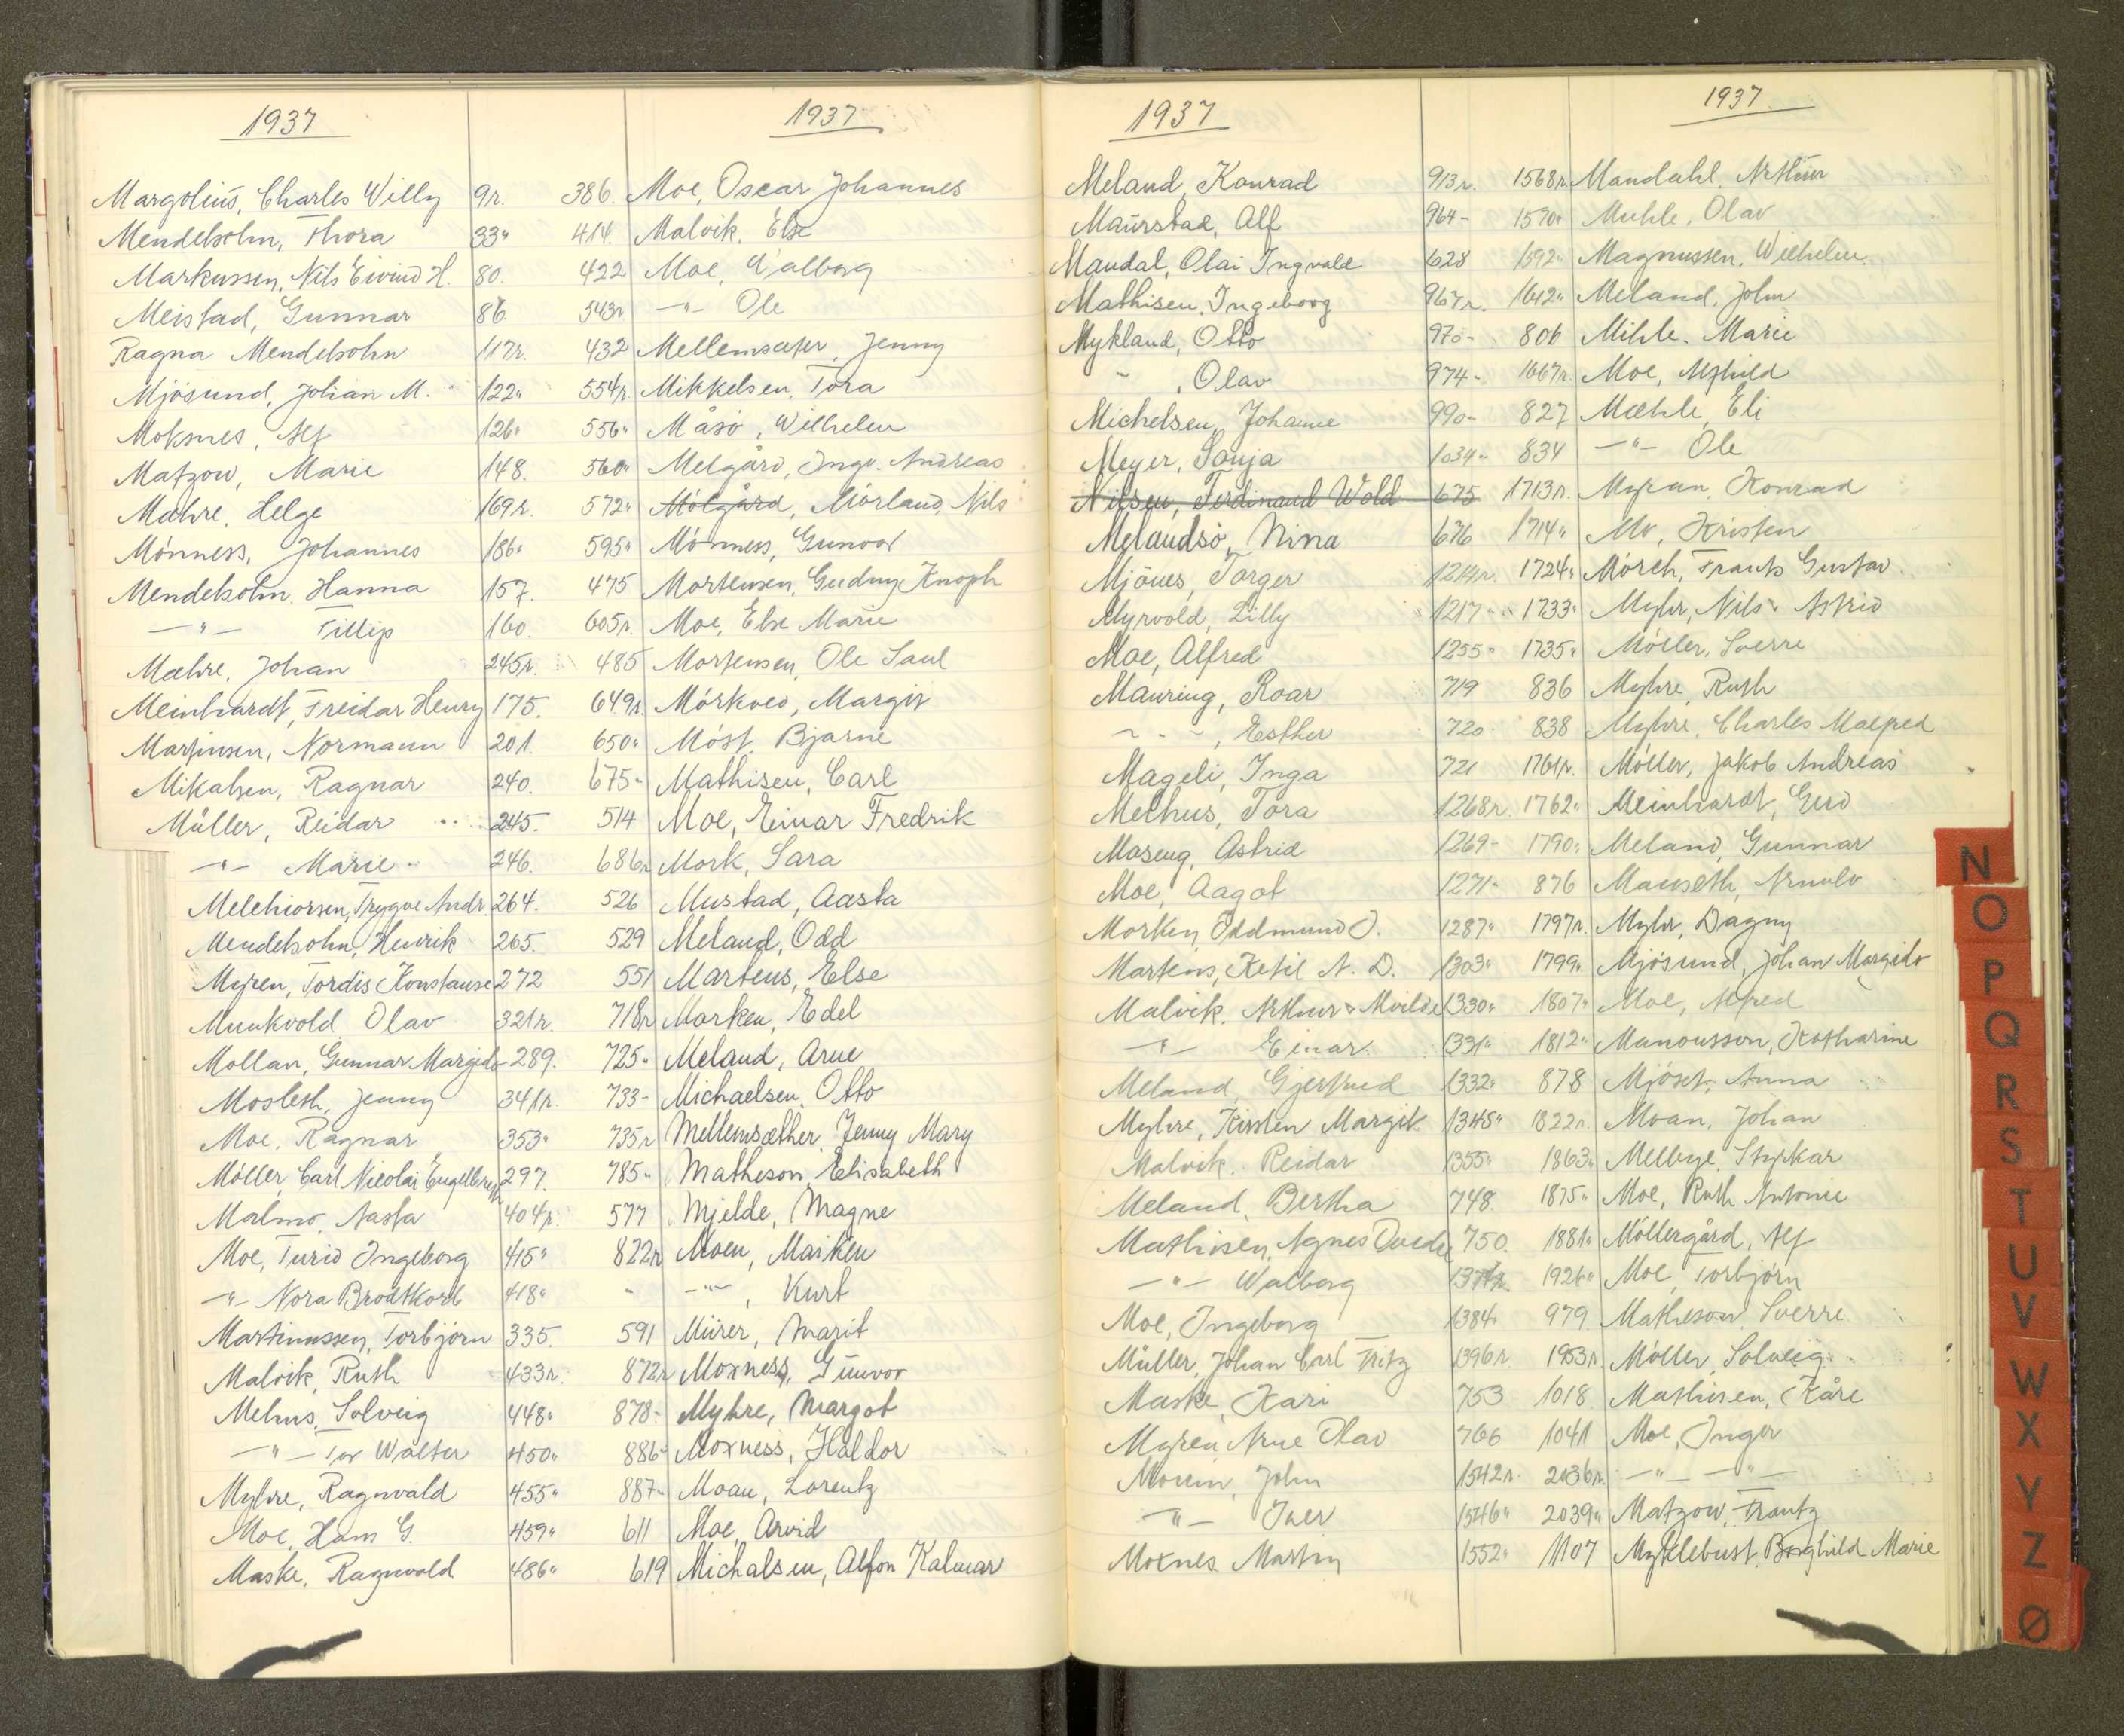 1937
Margolius, Charles Willy 9r.
Mendelsohn, Thora 33"
Markussen, Nils Eivind H. 80.
Meistad, Gunnar 86.
Ragna Mendelsohn 117r.
Mjösund, Johan M. 122"
Moksnes, Alf 126"
Matzow, Marie 148.
Mæhre, Helge 169r.
Mönness, Johannes 186"
Mendelsohn, Hanna 157.
—"— Fillip 160.
Mæhre, Johan 245r.
Meinhardt, Freidar Henry 175.
Martinsen, Normann 201.
Mikalsen, Ragnar 240.
Müller, Reidar 245.
—"— Marie 246.
Melchiorsen, Trygve Andr. 264.
Mendelsohn, Henrik 265.
Myren, Tordis Konstanse 272
Munkvold Olav 321r.
Mollan, Gunnar Margido 289.
Mosleth, Jenny 341r.
Moe, Ragnar 353"
Möller, Carl Nicolai Engelbreth 297.
Malmo, Aasta 404r.
Moe, Turid Ingeborg 415"
—"— Nora Brodtkorb 418"
Martinussen, Torbjörn 335.
Malvik, Ruth 433r.
Mehus, Solveig 448"
—"— Tor Walter 450"
Myhre, Ragnvald 455"
Moe, Hans G. 459"
Maske, Ragnvald 486"
1937
386. Moe, Oscar Johannes
414. Malvik, Else
422 Moe, Valborg
543r —"— Ole
432 Mellemsæter, Jenny
554r. Mikkelsen, Tora
556" Måsö, Wilhelm
560" Melgård, Ingv. Andreas
572" Mölgård, Mörland, Nils
595" Mönness, Gunvor
475 Mortensen, Gudny Knoph
605r. Moe, Else Marie
485 Mortensen, Ole Saul
649r. Mörkved, Margit
650" Möst, Bjarne
675" Mathisen, Carl
514 Moe, Einar Fredrik
686r Mork, Sara
526 Mustad, Aasta
529 Meland, Odd
551 Martens, Else
718r Morken, Edel
725" Meland, Arne
733- Michaelsen, Otto
735r Mellemsæther, Jenny Mary
785" Matheson, Elisabeth
577 Mjelde, Magne
822r Moen, Maiken
- —"—, Kurt
591 Mürer, Marit
872r Moxness, Gunvor
878- Myhre, Margot
886" Moxness, Haldor
887" Moan, Lorentz
611 Moe, Arvid
619 Michalsen, Alfon Kalmar
1937
Meland, Konrad 913r.
Maurstad, Alf 964-
Mandal, Olai Ingvald 628
Mathisen, Ingeborg 967r.
Mykland, Otto 970-
" , Olav 974-
Michelsen, Johanne 990-
Meyer, Sonja 1034"
Nilsen, Ferdinand Wold 675
Melandsö, Nina 676
Mjönes, Torger 1214r.
Myrvold, Lilly 1217"
Moe, Alfred 1255"
Mauring, Roar 719
—"—, Esther 720
Mageli, Inga 721
Melhus, Tora 1268r.
Moseng, Astrid 1269-
Moe, Aagot 1271"
Morken, Oddmund J. 1287"
Martens, Ketil N. D. 1303"
Malvik, Arthur & Alvilde 1330"
—"— Einar 1331"
Meland, Gjertrud 1332"
Myhre, Kirsten Margit 1345"
Malvik, Reidar 1355"
Meland, Bertha 748.
Mathisen, Agnes 750.
—"— Walborg
Moe, Ingeborg 1384"
Müller, Johan Carl Fritz 1396r.
Maske, Kari 753
Myren, Arne Olav 766
John 1542r.
—"— Iver 1546"
Moxnes, Martin 1552"
1937
1568r. Mandahl, Arthur
1570" Muhle, Olav
1592" Magnussen, Wilhelm
1612" Meland, John
806 Mihle, Marie
1667r. Moe, Alfhild
827 Mæhle, Eli
834 —"— Ole
1713r. Myran, Konrad
1714" Mo, Kristen
1724" Mörch, Frants Gustav
1733" Myhr, Nils & Astrid
1735" Möller, Sverre
836 Myhre, Ruth
838 Myhre, Charles
1761r. Möller, Jakob Andreas
1762" Meinhardt, Gerd
1790" Meland, Gunnar
876 Mauseth, Arnulv
1797r. Myhr, Dagny
1799" Mjösund, Johan Margido
1807" Moe, Alfred
1812" Manousson, Katharine
878 Mjöset, Anna
1822r. Moan, Johan
1863" Melbye, Styrkar
1875" Moe, Ruth Antonie
1881" Möllergård, Alf
1926" Moe, Torbjörn
979 Matheson, Sverre
1953r Möller, Solveig
1018 Mathisen, Kåre
1041 Moe, Inger
2036r. —"— —"—
2039" Matzow, Frantz
1107 Myklebust, Borghild Marie
N
O
P
Q
R
S
T
U
V
W
X
Y
Z
Ø